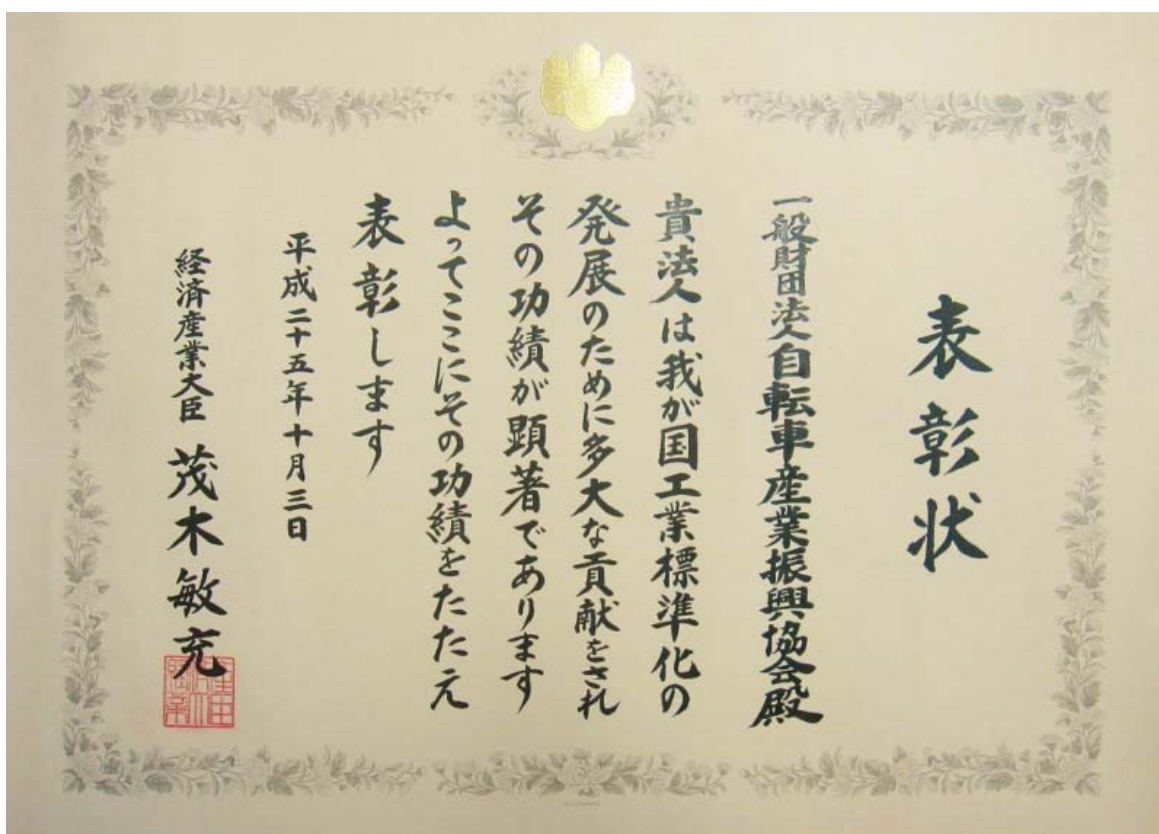 表彰状
一般財団法人自転車産業振興協会殿
貴法人は我が国工業標準化の
発展のために多大な貢献をされ
その功績が顕著であります
よってここにその功績をたたえ
表彰します
平成二十五年十月三日
経済産業大臣 茂木敏充